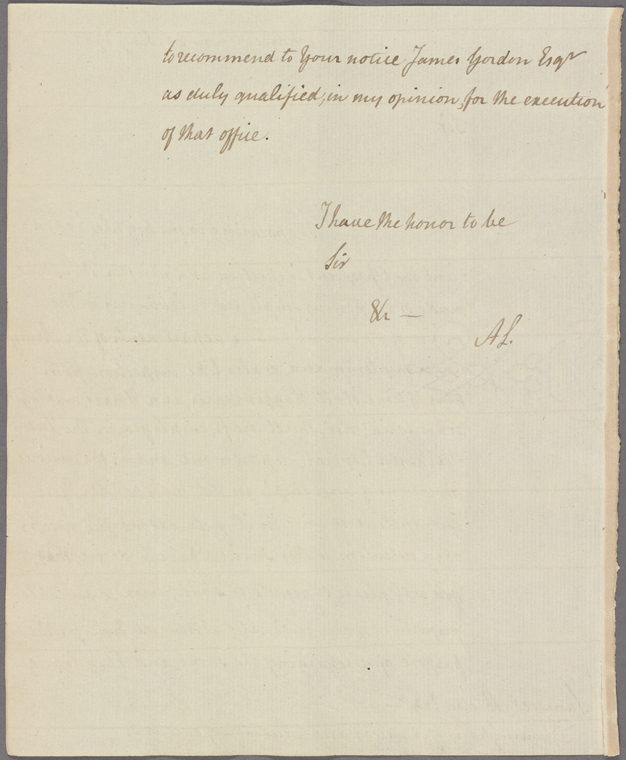 to recommend to Your notice James Gordon Esqr
as duly qualified, in my opinion, for the execution
of that office.
I have the honor to be
Sir
&c —
A L.